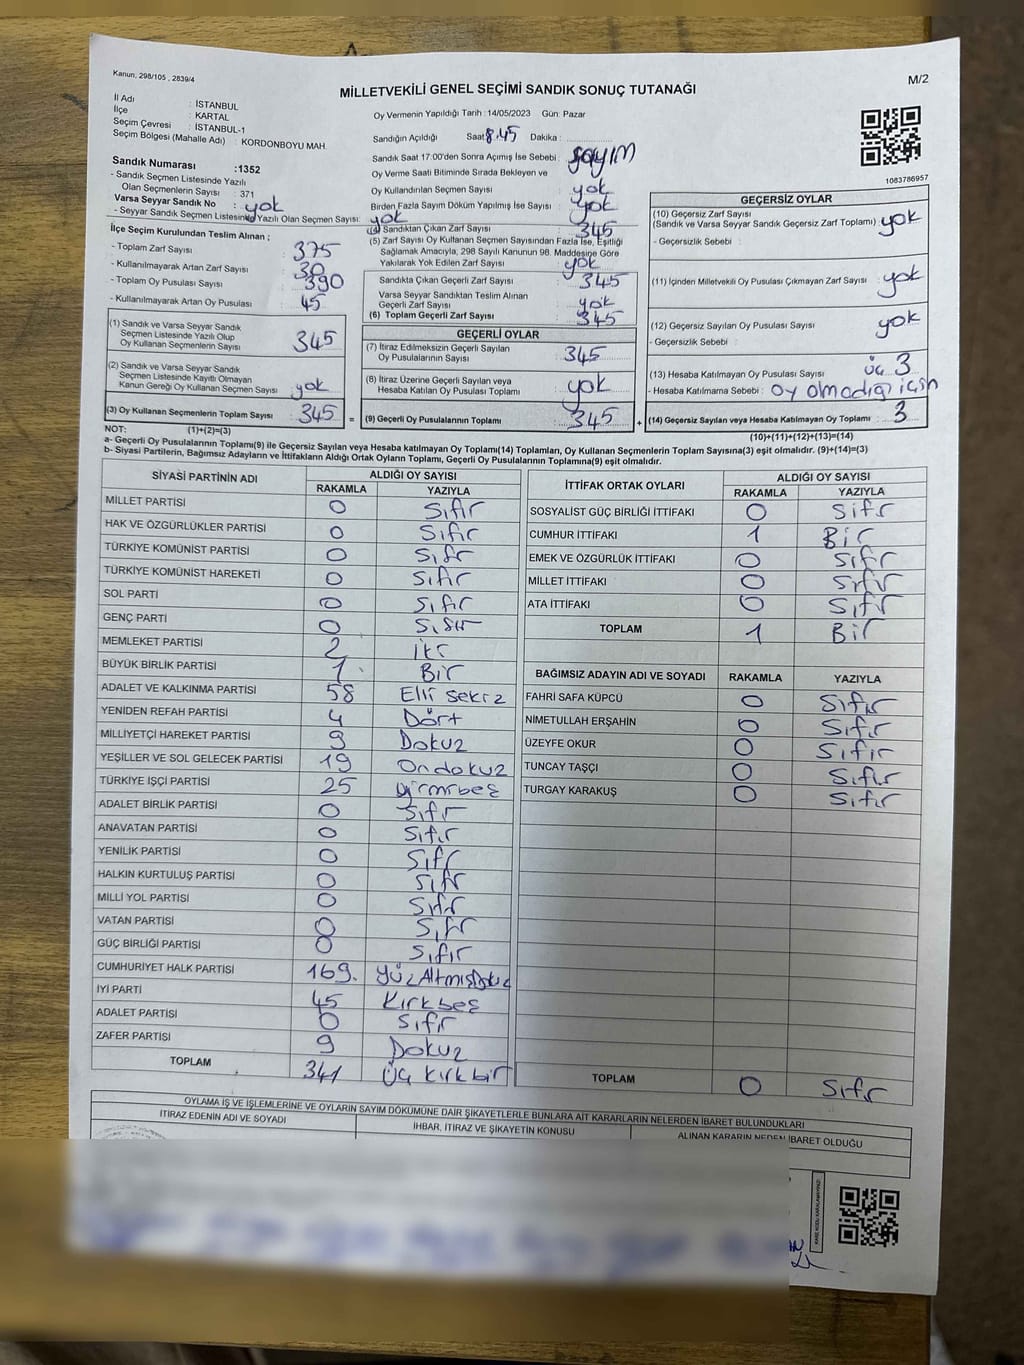 Kanun, 298/105 , 2839/4
M/2
MİLLETVEKİLİ GENEL SEÇİMİ SANDIK SONUÇ TUTANAĞI
İl Adı : İSTANBUL
İlçe : KARTAL
Seçim Çevresi : İSTANBUL-1
Seçim Bölgesi (Mahalle Adı) : KORDONBOYU MAH.
Sandık Numarası :1352
- Sandık Seçmen Listesinde Yazılı
Olan Seçmenlerin Sayısı : 371
Varsa Seyyar Sandık No : yok
- Seyyar Sandık Listesinde Yazılı Olan Seçmen Sayısı: yok
İlçe Seçim Kurulundan Teslim Alınan ;
- Toplam Zarf Sayısı : 375
- Kullanılmayarak Artan Zarf Sayısı : 30
- Toplam Oy Pusulası Sayısı : 390
- Kullanılmayarak Artan Oy Pusulası : 45
(1) Sandık ve Varsa Seyyar Sandık
Seçmen Listesinde Yazılı Olup
Oy Kullanan Seçmenlerin Sayısı : 345
(2) Sandık ve Varsa Seyyar Sandık
Seçmen Listesinde Kayıtlı Olmayan
Kanun Gereği Oy Kullanan Seçmen Sayısı : yok
(3) Oy Kullanan Seçmenlerin Toplam Sayısı : 345 =
Oy Vermenin Yapıldığı Tarih : 14/05/2023 Gün: Pazar
Sandığın Açıldığı Saat 8.45 Dakika :
Sandık Saat 17:00'den Sonra Açımış İse Sebebi : sayım
Oy Verme Saati Bitiminde Sırada Bekleyen ve
Oy Kullandırılan Seçmen Sayısı : yok
Birden Fazla Sayım Döküm Yapılmış İse Sayısı : yok
(4) Sandıktan Çıkan Zarf Sayısı : 345
(5) Zarf Sayısı Oy Kullanan Seçmen Sayısından Fazla İse, Eşitliği
Sağlamak Amacıyla, 298 Sayılı Kanunun 98. Maddesine Göre
Yakılarak Yok Edilen Zarf Sayısı : yok
Sandıkta Çıkan Geçerli Zarf Sayısı : 345
Varsa Seyyar Sandıktan Teslim Alınan
Geçerli Zarf Sayısı : yok
(6) Toplam Geçerli Zarf Sayısı : 345
GEÇERLİ OYLAR
(7) İtiraz Edilmeksizin Geçerli Sayılan
Oy Pusulalarının Sayısı : 345
(8) İtiraz Üzerine Geçerli Sayılan veya
Hesaba Katılan Oy Pusulası Toplamı : yok
(9) Geçerli Oy Pusulalarının Toplamı : 345 +
1083786957
GEÇERSİZ OYLAR
(10) Geçersiz Zarf Sayısı
(Sandık ve Varsa Seyyar Sandık Geçersiz Zarf Toplamı) : yok
- Geçersizlik Sebebi :
(11) İçinden Milletvekili Oy Pusulası Çıkmayan Zarf Sayısı : yok
(12) Geçersiz Sayılan Oy Pusulası Sayısı : yok
- Geçersizlik Sebebi :
(13) Hesaba Katılmayan Oy Pusulası Sayısı : üç 3
- Hesaba Katılmama Sebebi : Oy olmadığı için
(14) Geçersiz Sayılan veya Hesaba Katılmayan Oy Toplamı : 3
NOT: (1)+(2)=(3)
(10)+(11)+(12)+(13)=(14)
a- Geçerli Oy Pusulalarının Toplamı(9) ile Geçersiz Sayılan veya Hesaba katılmayan Oy Toplamı(14) Toplamları, Oy Kullanan Seçmenlerin Toplam Sayısına(3) eşit olmalıdır. (9)+(14)=(3)
b- Siyasi Partilerin, Bağımsız Adayların ve İttifakların Aldığı Ortak Oyların Toplamı, Geçerli Oy Pusulalarının Toplamına(9) eşit olmalıdır.
SİYASİ PARTİNİN ADI ALDIĞI OY SAYISI
RAKAMLA YAZIYLA
MİLLET PARTİSİ 0 Sıfır
HAK VE ÖZGÜRLÜKLER PARTİSİ 0 Sıfır
TÜRKİYE KOMÜNİST PARTİSİ 0 Sıfr
TÜRKİYE KOMÜNİST HAREKETİ 0 Sıfır
SOL PARTİ 0 Sıfır
GENÇ PARTİ 0 Sıfır
MEMLEKET PARTİSİ 2 İki
BÜYÜK BİRLİK PARTİSİ 1 Bir
ADALET VE KALKINMA PARTİSİ 58 Elli sekiz
YENİDEN REFAH PARTİSİ 4 Dört
MİLLİYETÇİ HAREKET PARTİSİ 9 Dokuz
YEŞİLLER VE SOL GELECEK PARTİSİ 19 Ondokuz
TÜRKİYE İŞÇİ PARTİSİ 25 yirmibeş
ADALET BİRLİK PARTİSİ 0 Sıfır
ANAVATAN PARTİSİ 0 Sıfır
YENİLİK PARTİSİ 0 Sıfr
HALKIN KURTULUŞ PARTİSİ 0 Sıfr
MİLLİ YOL PARTİSİ 0 Sıfır
VATAN PARTİSİ 0 Sıfr
GÜÇ BİRLİĞİ PARTİSİ 0 Sıfır
CUMHURİYET HALK PARTİSİ 169. YüzAltmışDokuz
İYİ PARTİ 45 Kırkbeş
ADALET PARTİSİ 0 Sıfır
ZAFER PARTİSİ 9 Dokuz
TOPLAM 341 Üç Kırkbir
İTTİFAK ORTAK OYLARI ALDIĞI OY SAYISI
RAKAMLA YAZIYLA
SOSYALİST GÜÇ BİRLİĞİ İTTİFAKI 0 Sıfr
CUMHUR İTTİFAKI 1 Bir
EMEK VE ÖZGÜRLÜK İTTİFAKI 0 Sıfır
MİLLET İTTİFAKI 0 Sıfr
ATA İTTİFAKI 0 Sıfr
TOPLAM 1 Bir
BAĞIMSIZ ADAYIN ADI VE SOYADI RAKAMLA YAZIYLA
FAHRİ SAFA KÜPCÜ 0 Sıfır
NİMETULLAH ERŞAHİN 0 Sıfır
ÜZEYFE OKUR 0 Sıfır
TUNCAY TAŞÇI 0 Sıfır
TURGAY KARAKUŞ 0 Sıfır
TOPLAM 0 Sıfır
OYLAMA İŞ VE İŞLEMLERİNE VE OYLARIN SAYIM DÖKÜMÜNE DAİR ŞİKAYETLERLE BUNLARA AİT KARARLARIN NELERDEN İBARET BULUNDUKLARI
İTİRAZ EDENİN ADI VE SOYADI İHBAR, İTİRAZ VE ŞİKAYETİN KONUSU ALINAN KARARIN NEDEN İBARET OLDUĞU